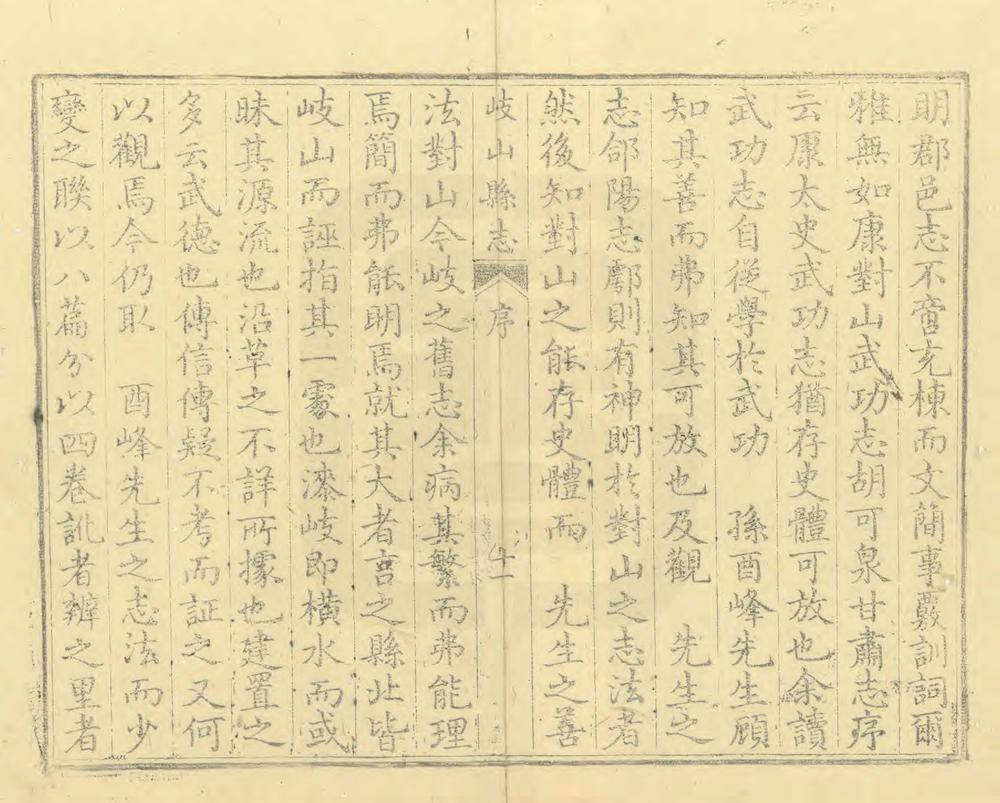 明郡邑志不啻充棟而文簡事覈訓詞爾
雅無如康對山武功志胡可泉甘肅志序
云康太史武功志猶存史體可放也余讀
武功志自從學於武功　孫酉峰先生顧
知其善而弗知其可放也及觀　先生之
志郃陽志鄠則有神明於對山之志法者
然後知對山之能存史體而　先生之善
岐山縣志　序　十一
法對山今岐之舊志余病其繁而弗能理
焉簡而弗能明焉就其大者言之縣北皆
岐山而誣指其一處也漆岐即橫水而或
昧其源流也沿革之不詳所據也建置之
多云武德也傳信傳疑不考而証之又何
以觀焉今仍取　酉峰先生之志法而少
變之聯以八篇分以四卷訛者辨之里者